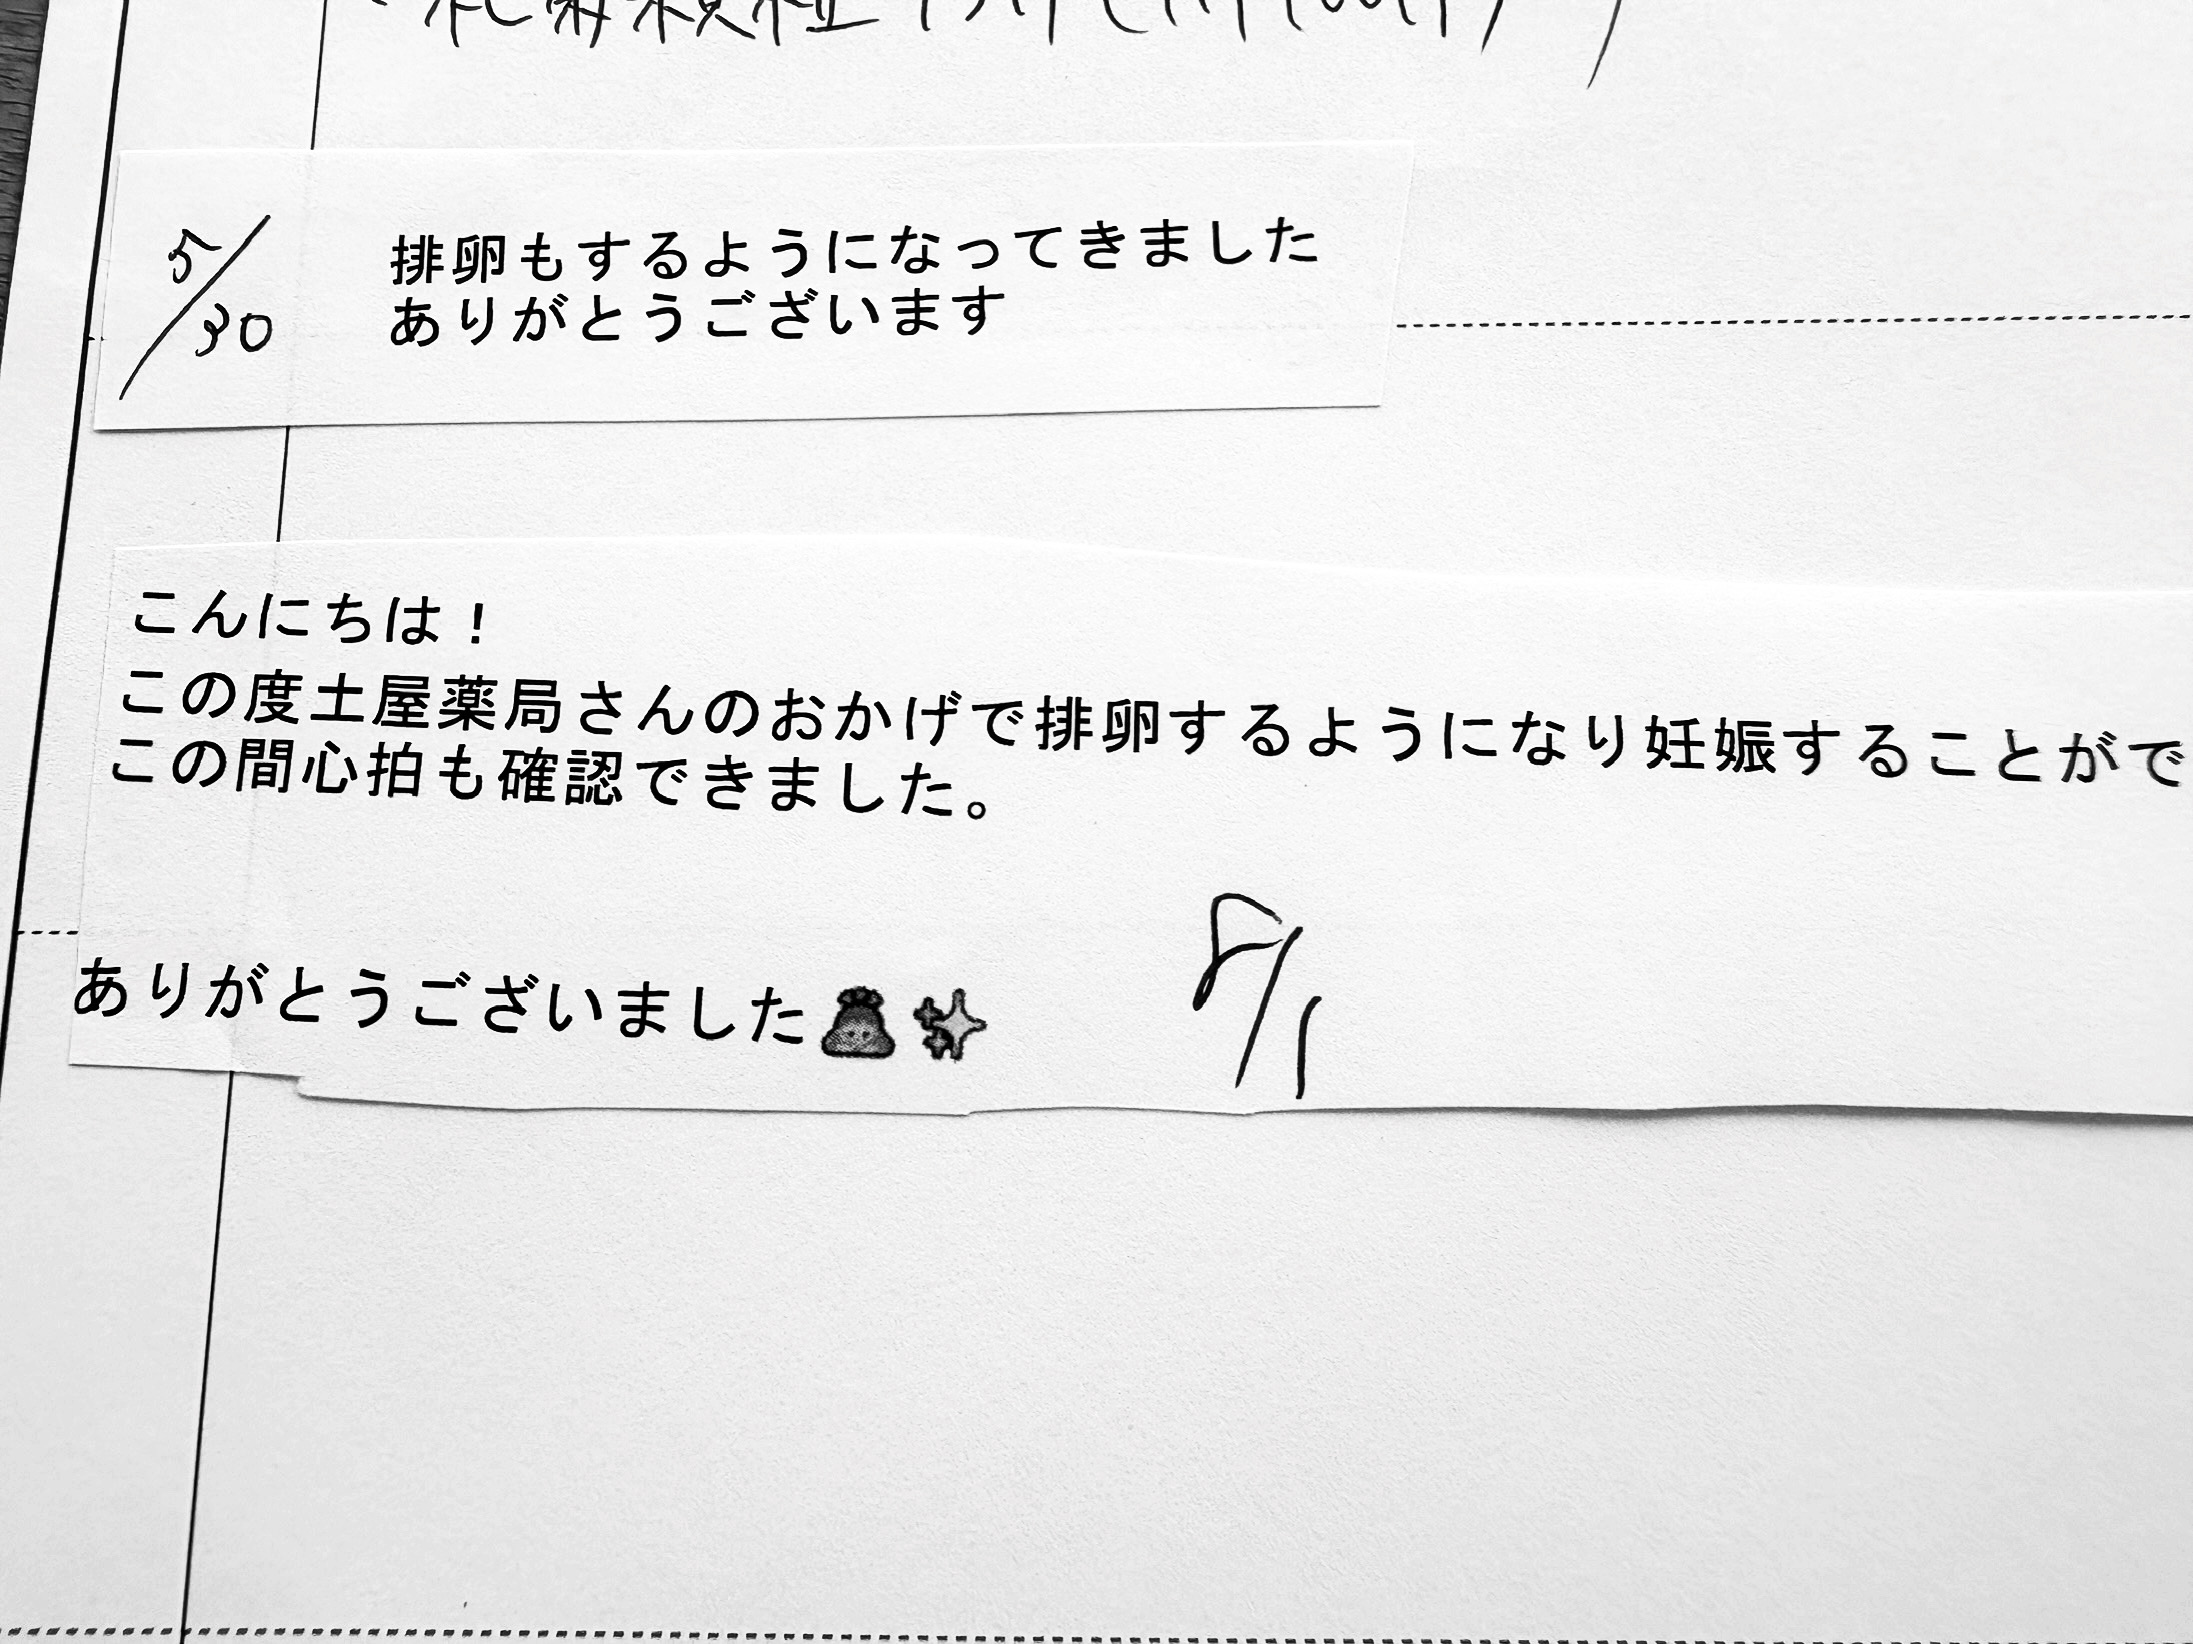 5/30
排卵もするようになってきました
ありがとうございます
こんにちは！
この度土屋薬局さんのおかげで排卵するようになり妊娠することがで
この間心拍も確認できました。
ありがとうございました🙇✨
8/1